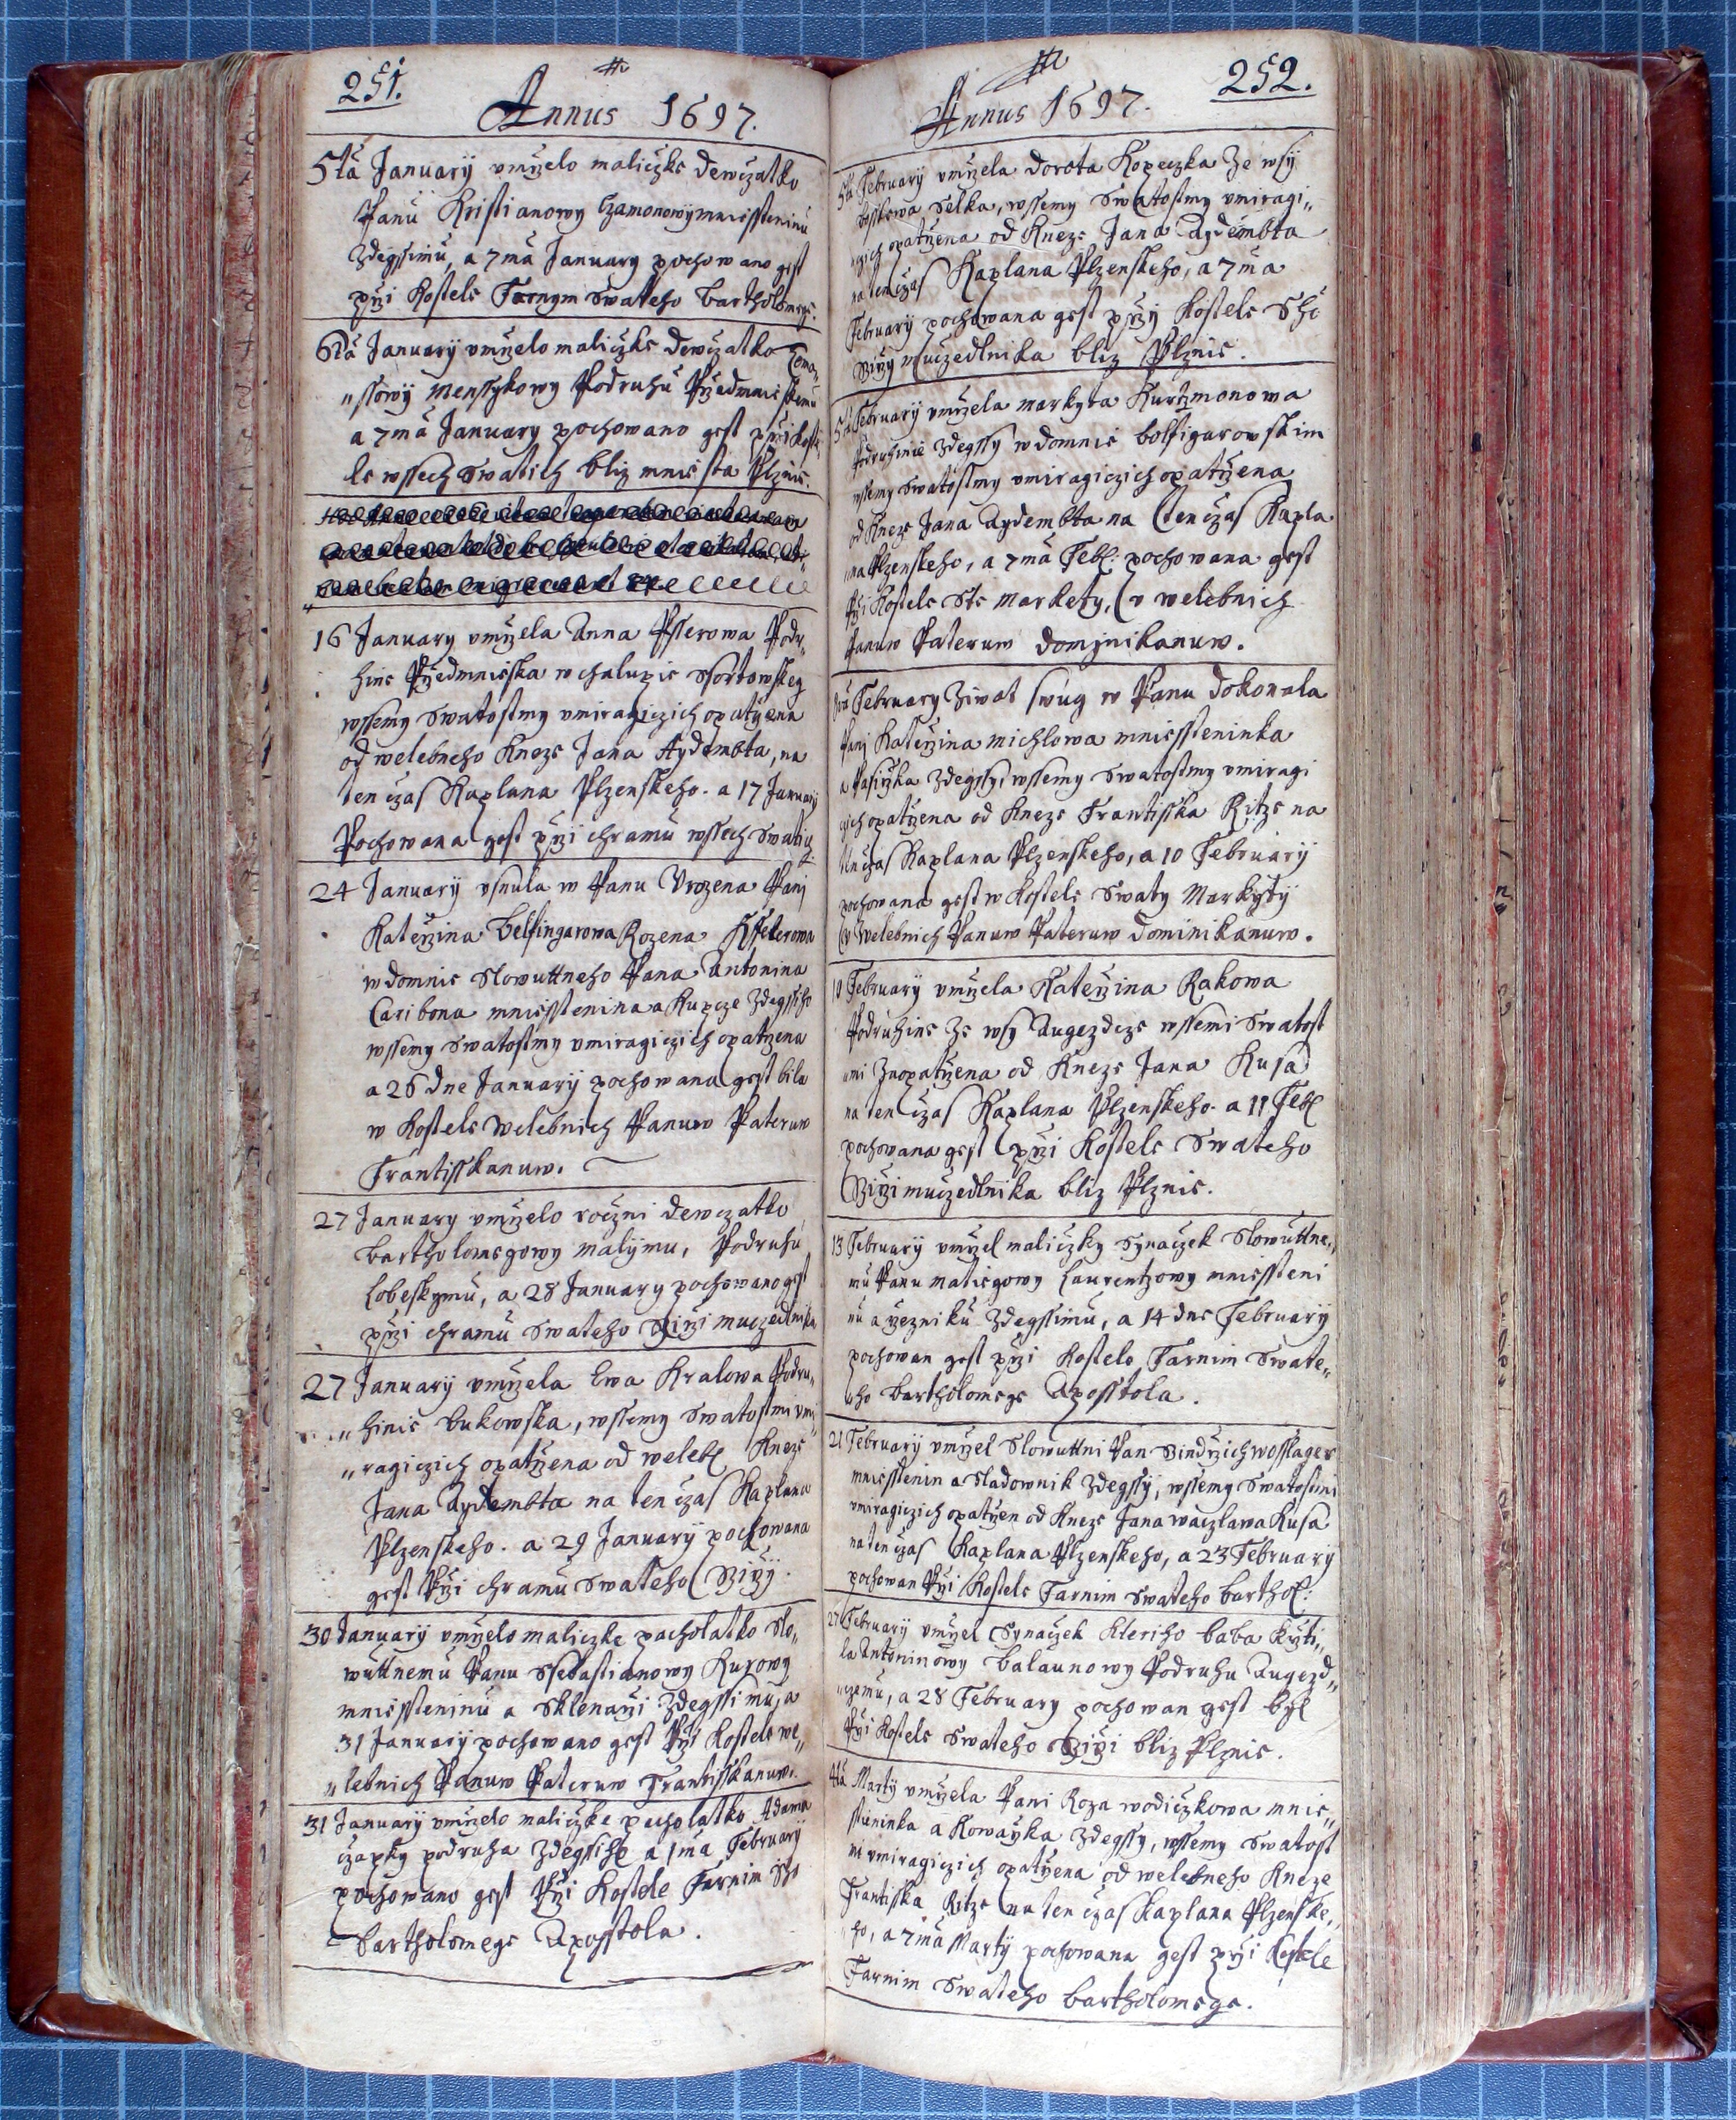 251.
Annus 1697.
5tá Januarÿ vmrzelo maliczke dewczatko
Panu Kristianowy Czamonowÿ mniessteninu
Zdegssimu, a 7má January pochowano gest
przi Kostele Farnym Swateho Bartholomege.
6tá Januarÿ vmrzelo maliczke dewczatko Tomas
„ssowÿ Menssykowy Podruhu Przedmniestkemu
a 7má January pochowano gest przi Koste
le wssech Swatich bliz mniesta Plznie.
16 January vmrzela Anna Psserowa Podr„
hine Przedmnieska w chalupie
wssemy Swatostmy vmiragiczich opatrzena
od welebneho Kneze Jana Aydembta, na
ten czas Kaplana Plzenskeho. a 17 Januarÿ
Pochowana gest przi chramu wssech Swatich
24 Januarÿ vsnula w Panu Vrozena Panj
Katerzina Belfingarowa Rozena
w domnie Slowuttneho Pana Antonina
Caribona mniesstenina a Kupcze Zdegssiho
wssemy Swatostmy vmiragiczich opatrzena
a 26 dne Januarÿ pochowana gest bila
w Kostele Welebnich Panuw Pateruw
Frantisskanuw.
27 January vmrzelo roczni dewczatko
Bartholomegowy Malÿmu, Podruhu
Lobeskymu, a 28 January pochowano gest
przi chramu Swateho Girzi muczedlnika
27 Januarÿ vmrzela Ewa Kralowa Podru„
„hinie Bukowska, wssemy Swatostmi vmi„
„ragiczich opatrzena od weleb Kneze
Jana Aydembta na ten czas Kaplana
Plzenskeho. a 29 Januarÿ pochowana
gest Przi chramu Swateho Girzÿ.
30 Januarÿ vmrzelo maliczke pacholatko Slo„
wuttnemu Panu Ssebastianowy
mniessteninu a Sklenarzi Zdegssimu, a
31 Januarÿ pochowano gest Przi Kostele we„
„lebnich Panuw Pateruw Frantisskanuw.
31 Januarÿ vmrzelo maliczke pacholatko Adama
Czapky podruha Zdegsiho a 1má Februarÿ
pochowano gest Przi Kostele Farnim Sho
Bartholomege Aposstola.
252.
Annus 1697.
5tá Februarÿ vmrzela Dorota Kopeczka Ze wsÿ
Selka, wssemy Swatostmy vmiragi„
czich opatrzena od Kneze Jana Aydembta
na ten czas Kaplana Plzenskeho, a 7má
Februarÿ pochowana gest przÿ Kostele Sho
Girzÿ muczedlnika bliz Plznie.
5tá Februarÿ vmrzela Markyta Kurtzmonowa
Podruhinie Zdegssy w domnie Bolfigarowskim
wssemy Swatostmy vmiragiczich opatrzena
od Kneze Jana Aydembta na ten czas Kapla
„na Plzenskeho, a 7má Feb: pochowana gest
Przi Kostele Ste Markety, v welebnich
Panuw Pateruw Domjnikanuw.
February Ziwot swug w Panu dokonala
Panj Katerzina Michlowa mniessteninka
a Zdegssy, wssemy Swatostmy vmiragi
czich opatrzena od Kneze Frantisska Ritze na
ten czas Kaplana Plzenskeho, a 10 Februarÿ
pochowana gest w Kostele Swaty Markÿtÿ
v Welebnich Panuw Pateruw Dominikanuw.
10 Februarÿ vmrzela Katerzina Rakowa
Podruhine Ze wsy Augezdcze wssemi Swatost
„mi Zaopatrzena od Kneze Jana Kusa
na ten czas Kaplana Plzenskeho. a 11 Feb
pochowana gest przi Kostele Swateho
Girzi muczedlnika bliz Plznie.
13 Februarÿ vmrzel maliczky Synaczek Slowuttne„
mu Panu Matiegowy Laurentzowy mniessteni
nu a rzezniku Zdegssimu, a 14 dne Februarÿ
pochowan gest przi Kostele Farnim Swate„
ho Bartholomege Aposstola.
21 Februarÿ vmrzel Slowuttni Pan Gindrzich
mniesstenin a Sladownik Zdegssÿ, wssemy Swatostmi
vmiragiczich opatrzen od Kneze Jana Waczlawa Kusa
na ten czas Kaplana Plzenskeho, a 23 February
pochowan Przi Kostele Farnim Swateho Barthol:
27 Februarÿ vmrzel Synaczek Kteriho baba krzti„
la Antoninowy Balaunowy Podruhu Augezd„
„czemu, a 28 February pochowan gest byl
Przi Kostele Swateho Girzi bliz Plznie.
4tá Martÿ vmrzela Pani Roza Wodiczkowa mnie„
steninka a Kowarzka Zdegssy, wssemy Swatost
mi vmiragiczich opatrzena od welebneho Kneze
Frantisska Ritze na ten czas Kaplana Plzenske„
ho, a 7má Martÿ pochowana gest przi Kostele
Farnim Swateho Bartholomege.